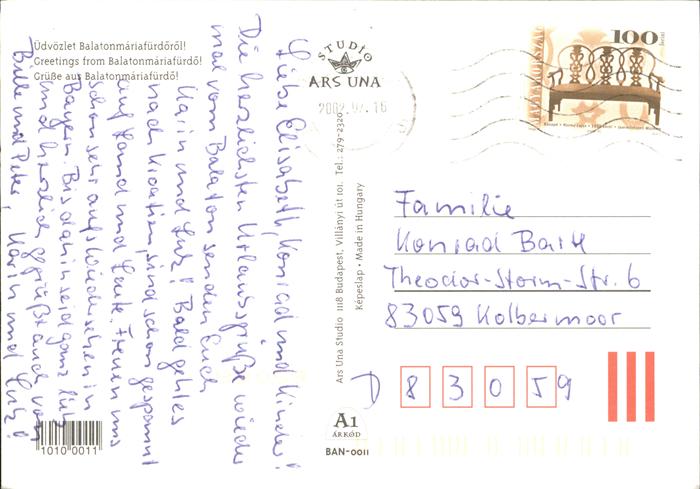 Üdvözlet Balatonmáriafürdőről!
Greetings from Balatonmáriafürdő!
Grüße aus Balatonmáriafürdő!
Liebe Elisabeth, Konrad und Kinder!
Die herzlichsten Urlaubsgrüße wieder
mal vom Balaton senden Euch
Karin und Lutz! Bald geht es
nach Kroatien, sind schon gespannt
auf Land und Leute. Freuen uns
schon sehr aufs Wiedersehen in
Bayern. Bis dahin seid ganz lieb
und herzlich gegrüßt auch von
Bille und Peter, Karin und Lutz!
1010 0011
STUDIO
ARS UNA
Ars Una Studio 1118 Budapest, Villányi út 101. Tel.: 279-2320
Képeslap • Made in Hungary
A1
ÁRKÓD
BAN-0011
MAGYARORSZÁG
100
Familie
Konrad
Theodor-Storm-Str. 6
83059 Kolbermoor
D 83059